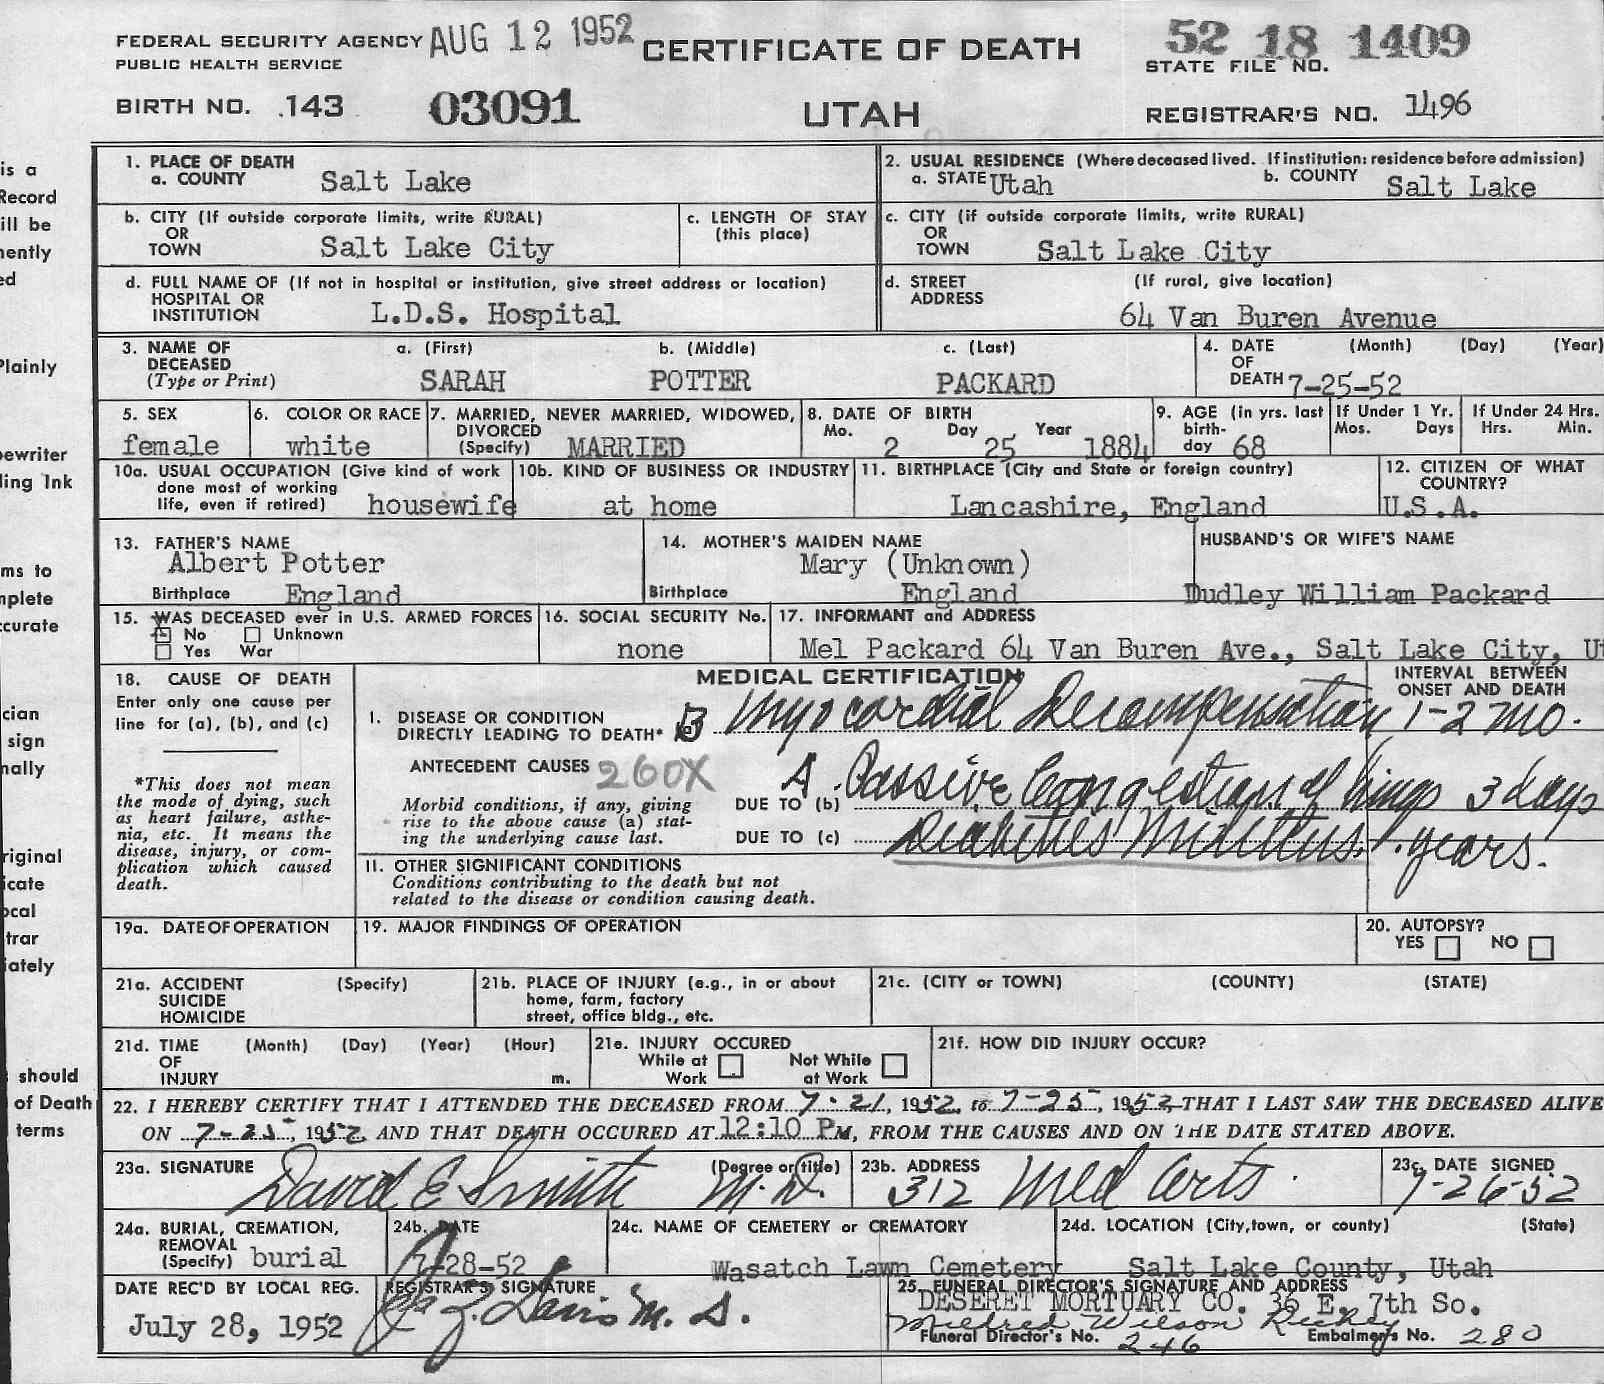 FEDERAL SECURITY AGENCY AUG 12 1952 CERTIFICATE OF DEATH 52 18 1409
PUBLIC HEALTH SERVICE STATE FILE NO.
BIRTH NO. 143 03091 UTAH REGISTRAR'S NO. 1496
is a
Record
ill be
nently
ed
Plainly
ewriter
ling Ink
ms to
mplete
ccurate
cian
sign
nally
riginal
icate
ocal
trar
iately
should
of Death
terms
1. PLACE OF DEATH
a. COUNTY Salt Lake
2. USUAL RESIDENCE (Where deceased lived. If institution: residence before admission)
a. STATE Utah b. COUNTY Salt Lake
b. CITY (If outside corporate limits, write RURAL)
OR
TOWN Salt Lake City
c. LENGTH OF STAY
(this place)
c. CITY (if outside corporate limits, write RURAL)
OR
TOWN Salt Lake City
d. FULL NAME OF (If not in hospital or institution, give street address or location)
HOSPITAL OR
INSTITUTION L.D.S. Hospital
d. STREET (If rural, give location)
ADDRESS
64 Van Buren Avenue
3. NAME OF a. (First) b. (Middle) c. (Last)
DECEASED
(Type or Print) SARAH POTTER PACKARD
4. DATE (Month) (Day) (Year)
OF
DEATH 7-25-52
5. SEX
female
6. COLOR OR RACE
white
7. MARRIED, NEVER MARRIED, WIDOWED,
DIVORCED
(Specify) MARRIED
8. DATE OF BIRTH
Mo. Day Year
2 25 1884
9. AGE (in yrs. last
birth-
day 68
If Under 1 Yr.
Mos. Days
If Under 24 Hrs.
Hrs. Min.
10a. USUAL OCCUPATION (Give kind of work
done most of working
life, even if retired) housewife
10b. KIND OF BUSINESS OR INDUSTRY
at home
11. BIRTHPLACE (City and State or foreign country)
Lancashire, England
12. CITIZEN OF WHAT
COUNTRY?
U.S.A.
13. FATHER'S NAME
Albert Potter
Birthplace England
14. MOTHER'S MAIDEN NAME
Mary (Unknown)
Birthplace England
HUSBAND'S OR WIFE'S NAME
Dudley William Packard
15. WAS DECEASED ever in U.S. ARMED FORCES
No Unknown
Yes War
16. SOCIAL SECURITY No.
none
17. INFORMANT and ADDRESS
Mel Packard 64 Van Buren Ave., Salt Lake City, Ut
18. CAUSE OF DEATH
Enter only one cause per
line for (a), (b), and (c)
*This does not mean
the mode of dying, such
as heart failure, asthe-
nia, etc. It means the
disease, injury, or com-
plication which caused
death.
MEDICAL CERTIFICATION
INTERVAL BETWEEN
ONSET AND DEATH
I. DISEASE OR CONDITION
DIRECTLY LEADING TO DEATH* B Myocardial Decompensation 1-2 mo.
ANTECEDENT CAUSES 260X
Morbid conditions, if any, giving
rise to the above cause (a) stat-
ing the underlying cause last.
DUE TO (b) A. Passive Congestion of lungs 3 days
DUE TO (c) Diabeties Midittus. years.
II. OTHER SIGNIFICANT CONDITIONS
Conditions contributing to the death but not
related to the disease or condition causing death.
19a. DATE OF OPERATION
19. MAJOR FINDINGS OF OPERATION
20. AUTOPSY?
YES NO
21a. ACCIDENT (Specify)
SUICIDE
HOMICIDE
21b. PLACE OF INJURY (e.g., in or about
home, farm, factory
street, office bldg., etc.
21c. (CITY or TOWN) (COUNTY) (STATE)
21d. TIME (Month) (Day) (Year) (Hour)
OF
INJURY m.
21e. INJURY OCCURED
While at Not While
Work at Work
21f. HOW DID INJURY OCCUR?
22. I HEREBY CERTIFY THAT I ATTENDED THE DECEASED FROM 7-21, 1952, to 7-25, 1952 THAT I LAST SAW THE DECEASED ALIVE
ON 7-25, 1952, AND THAT DEATH OCCURED AT 12:10 PM, FROM THE CAUSES AND ON THE DATE STATED ABOVE.
23a. SIGNATURE (Degree or title)
David E Smith M.D.
23b. ADDRESS
312 Med Arts.
23c. DATE SIGNED
7-26-52
24a. BURIAL, CREMATION,
REMOVAL
(Specify) burial
24b. DATE
7-28-52
24c. NAME OF CEMETERY or CREMATORY
Wasatch Lawn Cemetery
24d. LOCATION (City, town, or county) (State)
Salt Lake County, Utah
DATE REC'D BY LOCAL REG.
July 28, 1952
REGISTRAR'S SIGNATURE
Davis M.D.
25. FUNERAL DIRECTOR'S SIGNATURE AND ADDRESS
DESERET MORTUARY CO. 36 E. 7th So.
Mildred Wilson
Funeral Director's No. 246 Embalmer's No. 280